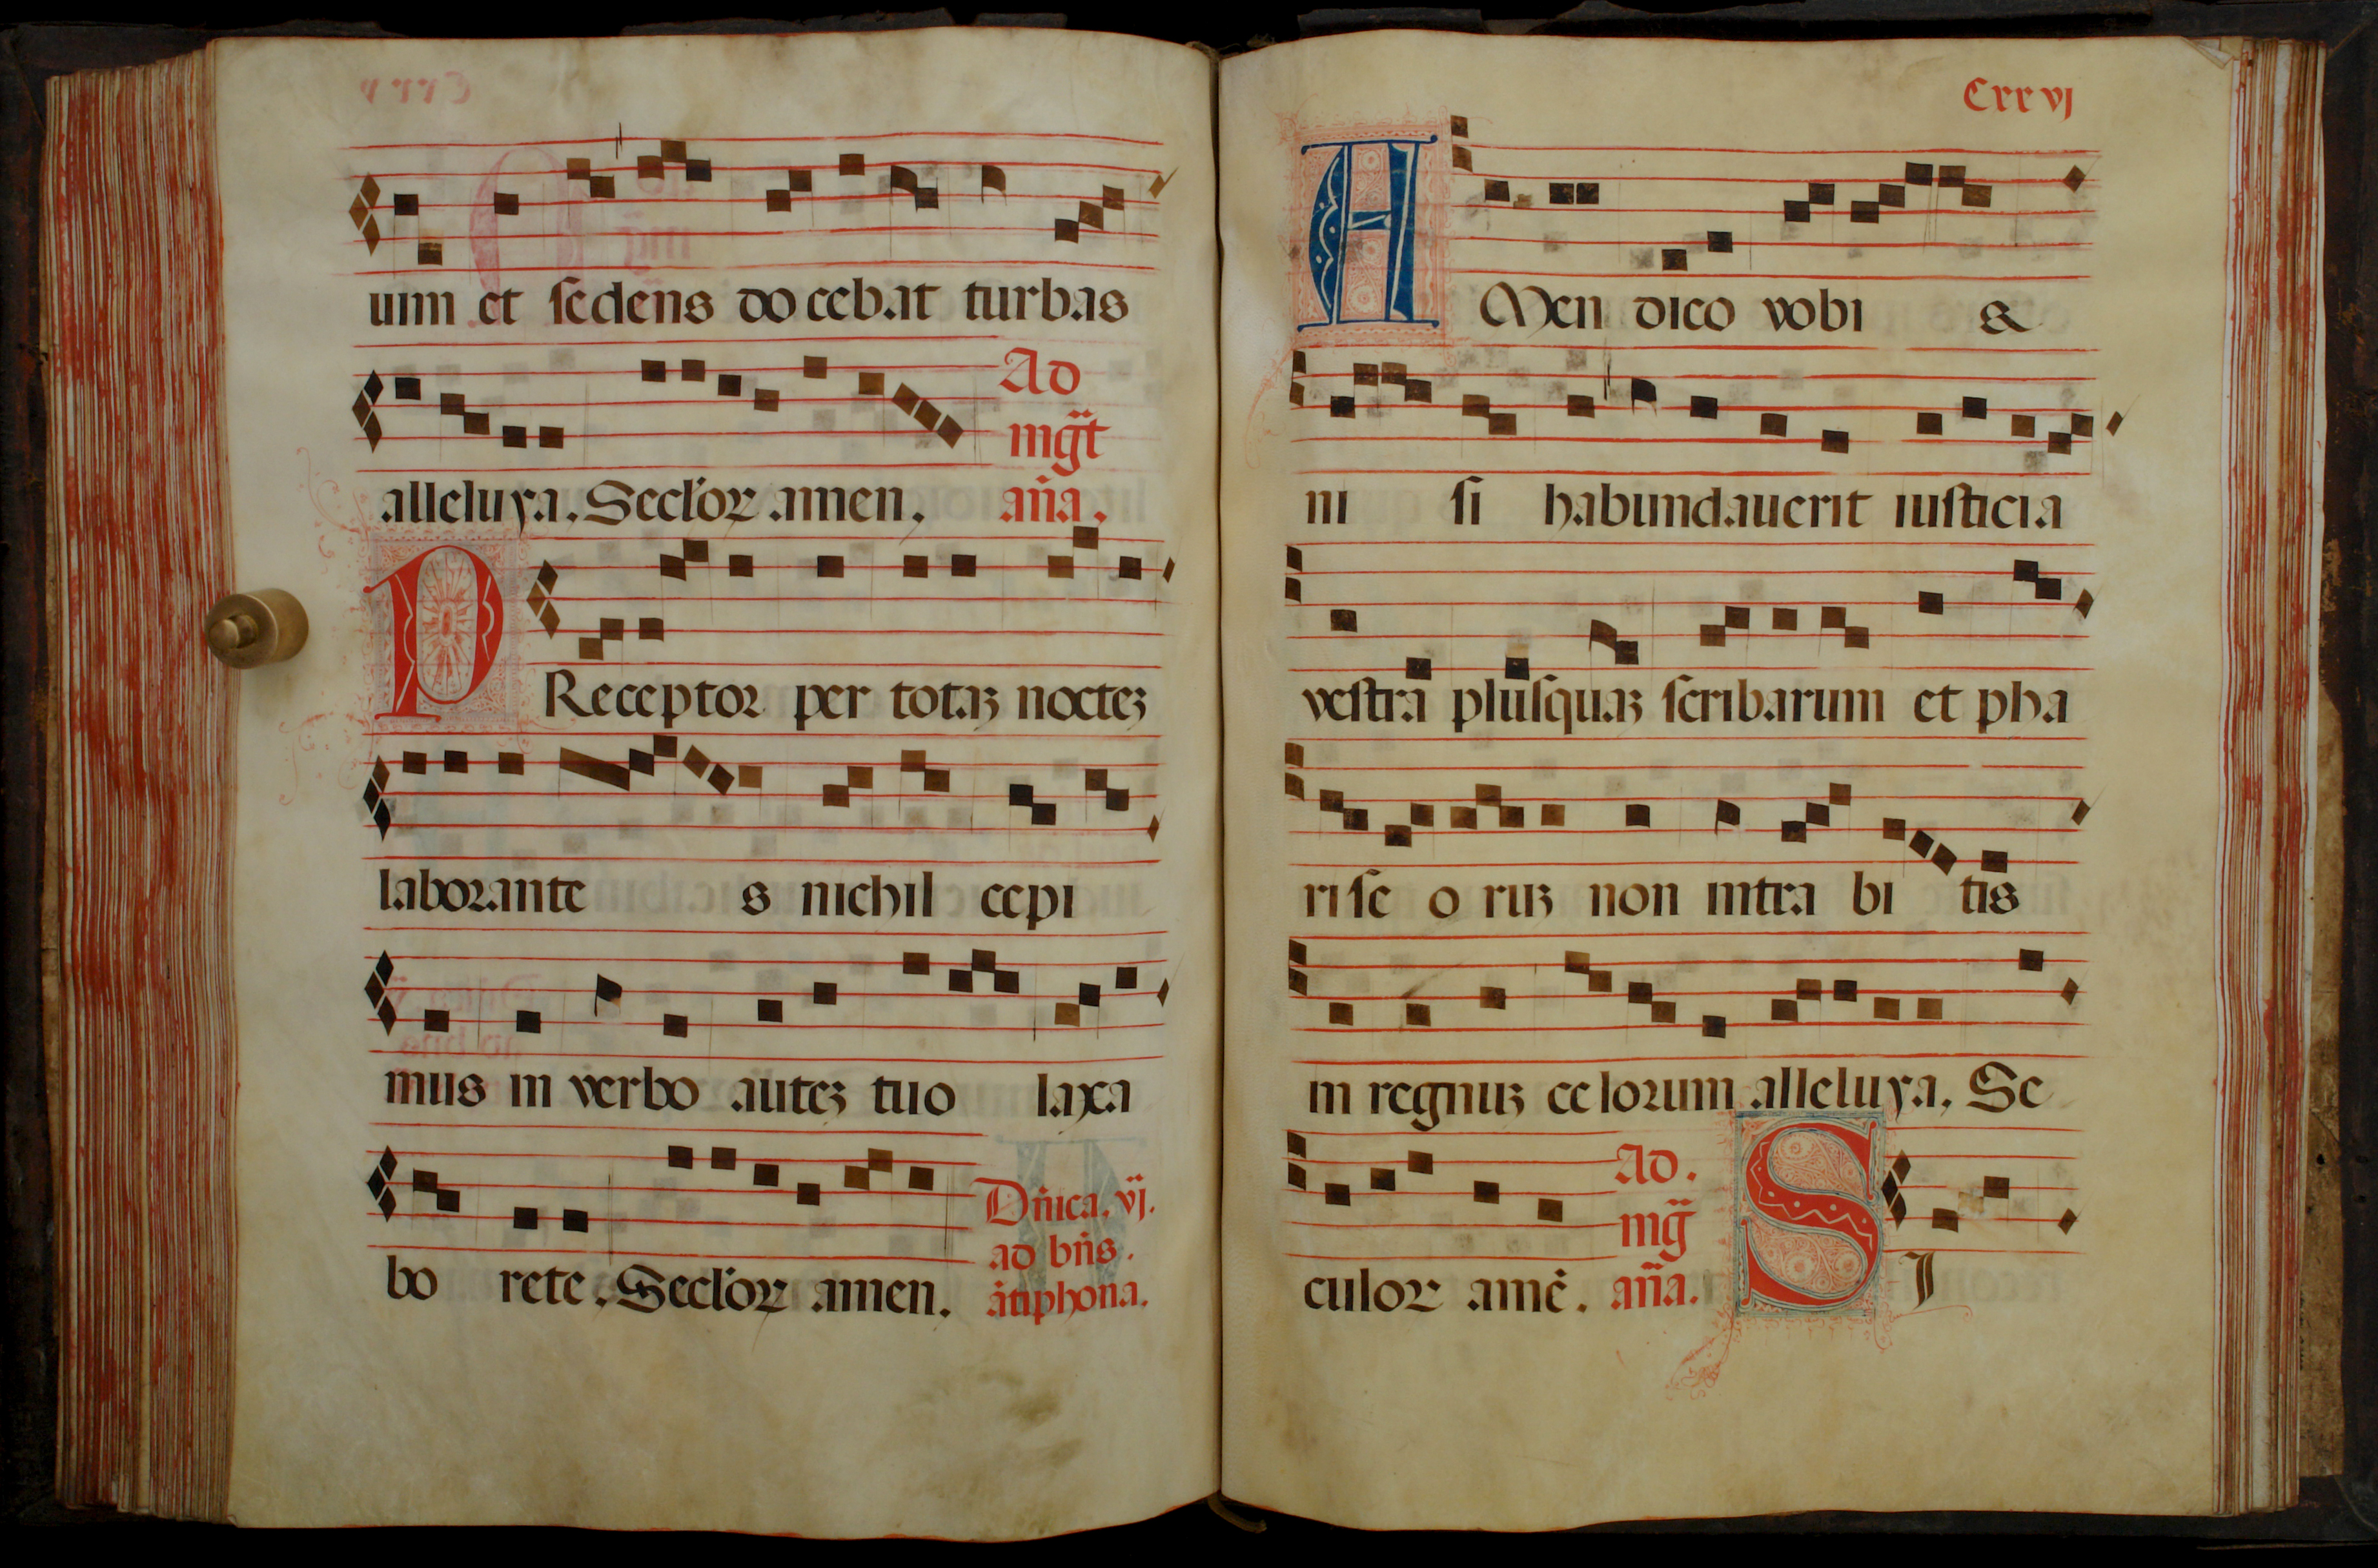 uim et sedens docebat turbas
alleluya. Seclor amen.
Ad
mgt
aña.
PReceptor per totaz noctez
laborante s nichil cepi
mus in verbo autez tuo laxa
bo rete. Seclor amen.
Dñica. vj.
ad bñs.
ātiphona.
Cxxvj
AMen dico vobi s
ni si habundauerit iusticia
vestra plusquaz scribarum et pha
rise o ruz non intra bi tis
in regnuz celorum alleluya. Se
culor amē.
Ad.
mg
aña.
SI